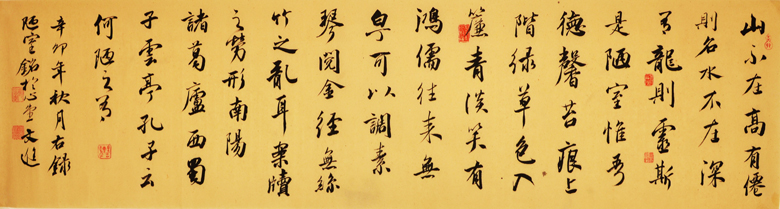 山不在高有僊
則名水不在深
有龍則靈斯
是陋室惟吾
德馨苔痕上
階綠草色入
簾青談笑有
鴻儒往來無
白丁可以調素
琴閱金經無絲
竹之亂耳案牘
之勞形南陽
諸葛廬西蜀
子雲亭孔子云
何陋之有
辛卯年秋月右錄
陋室銘於心堂文進